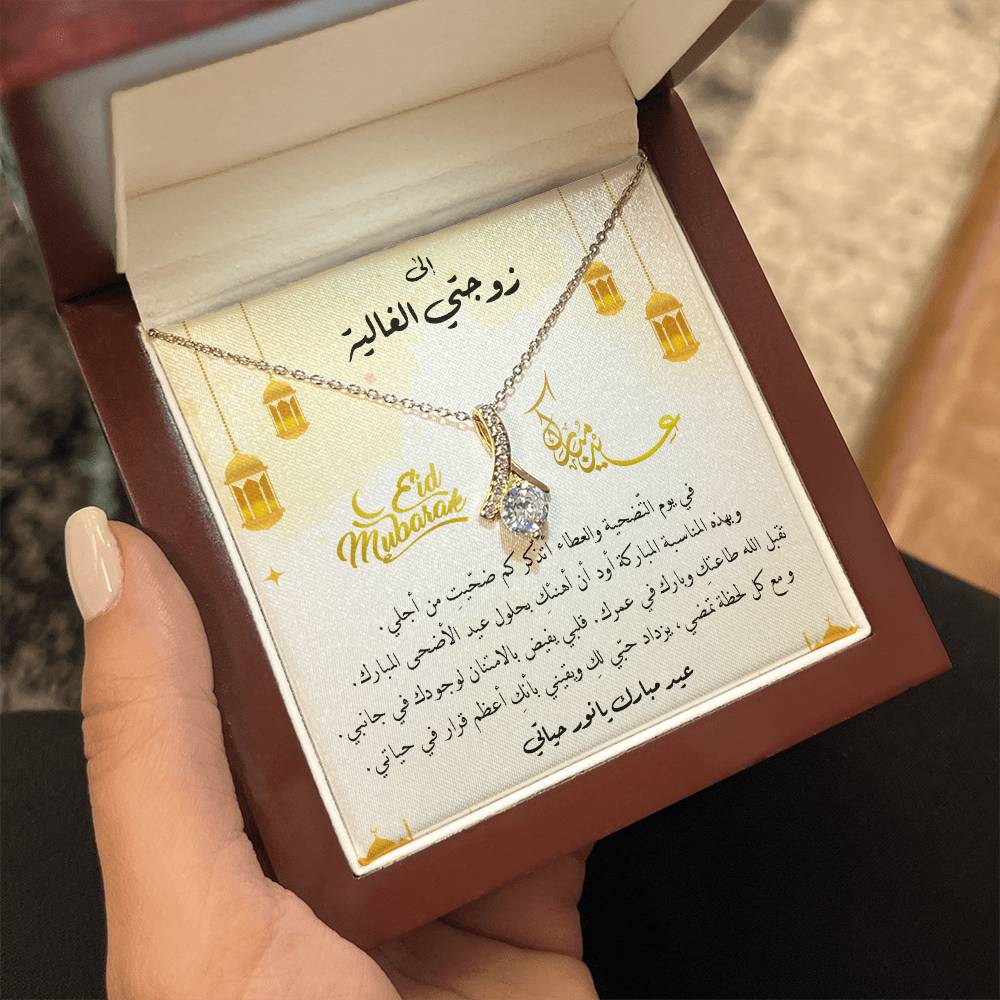 إلى
زوجتي الغالية
عيد مبارك
Eid
Mubarak
في يوم التّضحية والعطاء أتذكّر كم ضحّيتِ من أجلي.
وبهذه المناسبة المباركة أود أن أهنئكِ بحلول عيد الأضحى المبارك.
تقبل الله طاعتكِ وبارك في عمرك. قلبي يفيض بالامتنان لوجودك في جانبي.
و مع كل لحظة تمضي، يزداد حبّي لكِ ويقيني بأنكِ أعظم قرار في حياتي.
عيد مبارك يا نور حياتي